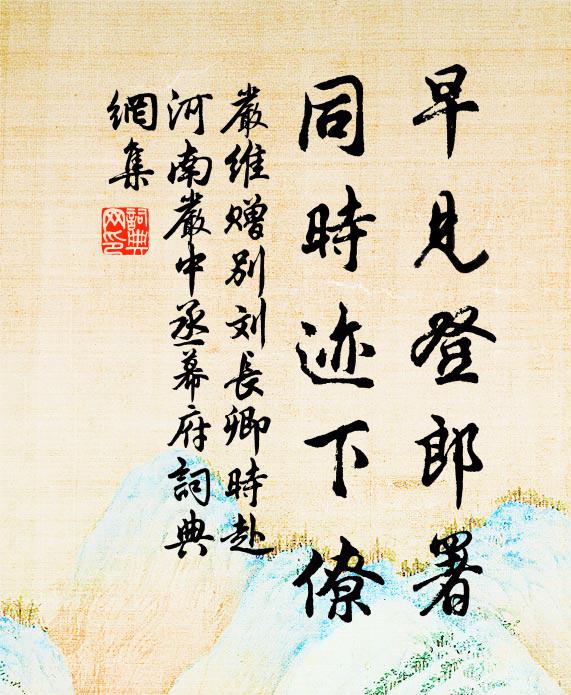 早見登郎署
同時迹下僚
嚴維贈别刘長卿時赴
河南嚴中丞幕府詞典
網集
詞典网印